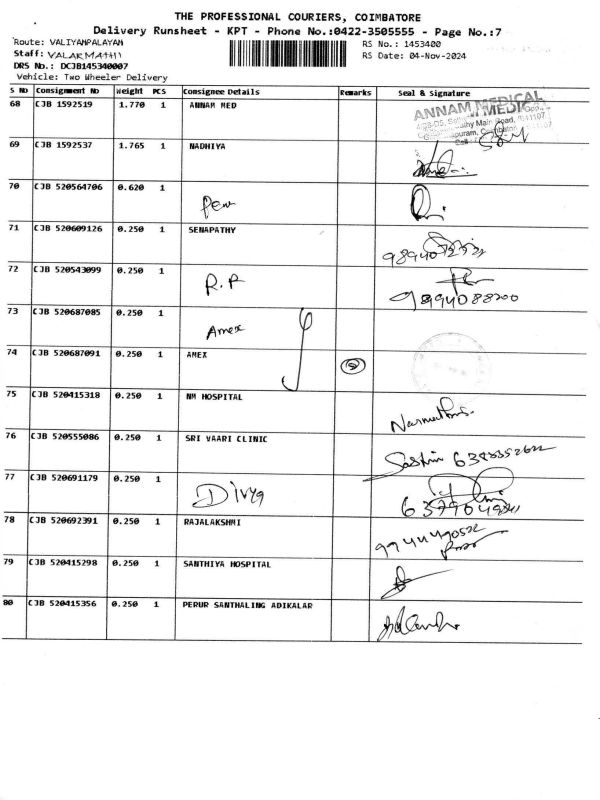 THE PROFESSIONAL COURIERS, COIMBATORE
Delivery Runsheet - KPT - Phone No.:0422-3505555 - Page No.:7
Route: VALIYAMPALAYAM
RS No.: 1453400
Staff: VALARMATHI
RS Date: 04-Nov-2024
DRS No.: DCJB145340007
Vehicle: Two Wheeler Delivery
S No Consignment No Weight PCS Consignee Details Remarks Seal & Signature
68 CJB 1592519 1.770 1 ANNAM MED
ANNAM MEDICAL
69 CJB 1592537 1.765 1 NADHIYA
70 CJB 520564706 0.620 1
71 CJB 520609126 0.250 1 SENAPATHY
72 CJB 520543099 0.250 1 R.P
9894088200
73 CJB 520687085 0.250 1 Amex
74 CJB 520687091 0.250 1 AMEX
75 CJB 520415318 0.250 1 NM HOSPITAL
76 CJB 520555086 0.250 1 SRI VAARI CLINIC
77 CJB 520691179 0.250 1 Divya
78 CJB 520692391 0.250 1 RAJALAKSHMI
79 CJB 520415298 0.250 1 SANTHIYA HOSPITAL
80 CJB 520415356 0.250 1 PERUR SANTHALING ADIKALAR